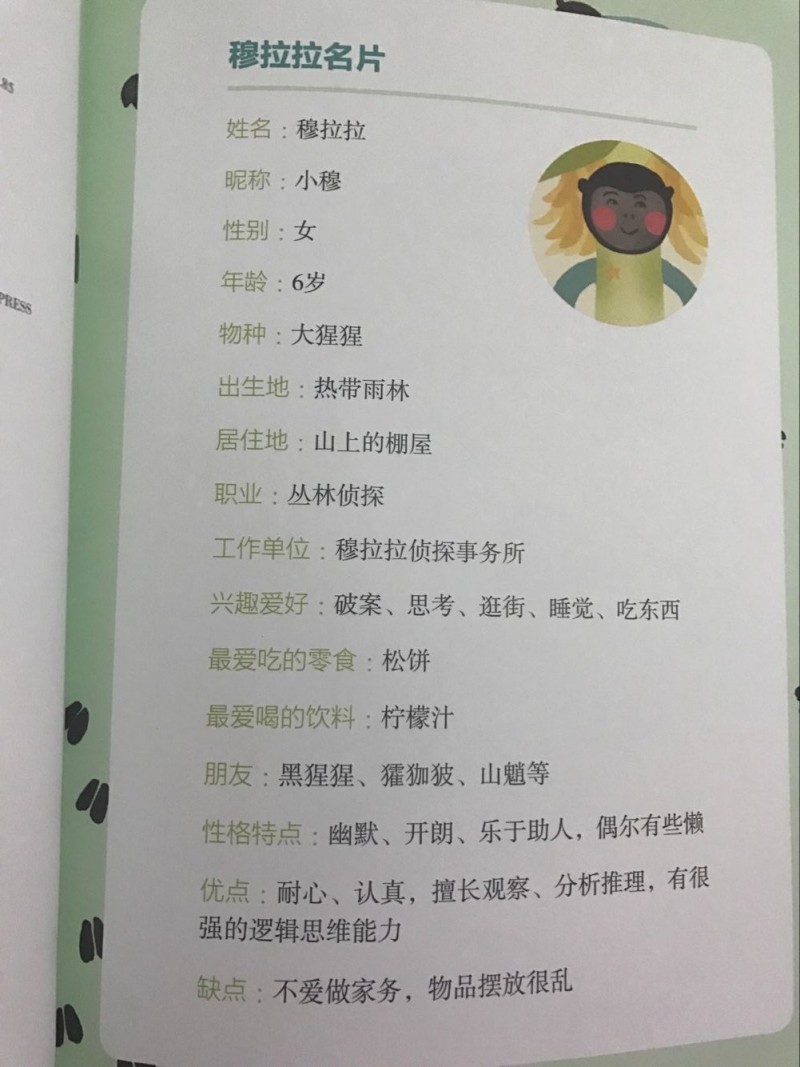 .85
PRESS
穆拉拉名片
姓名：穆拉拉
昵称：小穆
性别：女
年龄：6岁
物种：大猩猩
出生地：热带雨林
居住地：山上的棚屋
职业：丛林侦探
工作单位：穆拉拉侦探事务所
兴趣爱好：破案、思考、逛街、睡觉、吃东西
最爱吃的零食：松饼
最爱喝的饮料：柠檬汁
朋友：黑猩猩、獾㹢狓、山魈等
性格特点：幽默、开朗、乐于助人，偶尔有些懒
优点：耐心、认真，擅长观察、分析推理，有很
强的逻辑思维能力
缺点：不爱做家务，物品摆放很乱